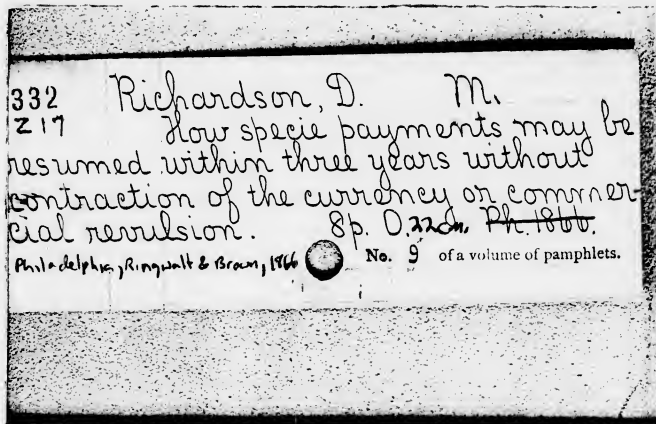 332 Richardson, D. M.
Z17 How specie payments may be
resumed within three years without
contraction of the currency or commer-
cial revulsion. 8p. O. 22cm. Ph. 1866.
Philadelphia, Ringwalt & Brown, 1866 No. 9 of a volume of pamphlets.